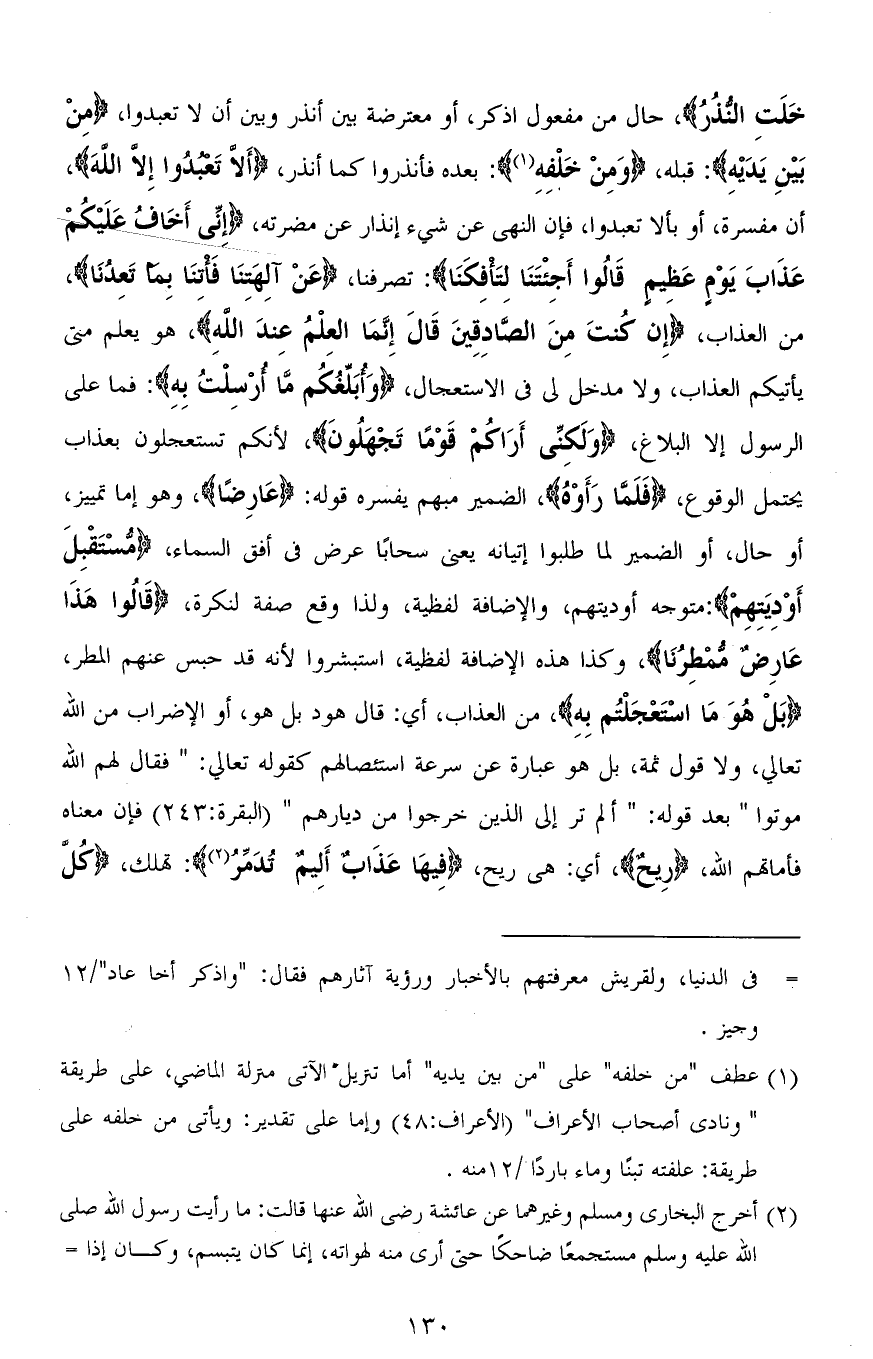 خَلَتِ النُّذُرُ﴾، حال من مفعول اذكر، أو معترضة بين أنذر وبين أن لا تعبدوا، ﴿مِنْ
بَيْنِ يَدَيْهِ﴾: قبله، ﴿وَمِنْ خَلْفِهِ(١)﴾: بعده فأنذروا كما أنذر، ﴿أَلاَّ تَعْبُدُوا إِلاَّ اللَّهَ﴾،
أن مفسرة، أو بألا تعبدوا، فإن النهى عن شيء إنذار عن مضرته، ﴿إِنِّى أَخَافُ عَلَيْكُمْ
عَذَابَ يَوْمٍ عَظِيمٍ قَالُوا أَجِئْتَنَا لِتَأْفِكَنَا﴾: تصرفنا، ﴿عَنْ آلِهَتِنَا فَأْتِنَا بِمَا تَعِدُنَا﴾،
من العذاب، ﴿إِن كُنتَ مِنَ الصَّادِقِينَ قَالَ إِنَّمَا العِلْمُ عِندَ اللَّهِ﴾، هو يعلم متى
يأتيكم العذاب، ولا مدخل لى فى الاستعجال، ﴿وَأُبَلِّغُكُم مَّا أُرْسِلْتُ بِهِ﴾: فما على
الرسول إلا البلاغ، ﴿وَلَكِنِّى أَرَاكُمْ قَوْمًا تَجْهَلُونَ﴾، لأنكم تستعجلون بعذاب
يحتمل الوقوع، ﴿فَلَمَّا رَأَوْهُ﴾، الضمير مبهم يفسره قوله: ﴿عَارِضًا﴾، وهو إما تمييز،
أو حال، أو الضمير لما طلبوا إتيانه يعنى سحابًا عرض فى أفق السماء، ﴿مُّسْتَقْبِلَ
أَوْدِيَتِهِمْ﴾:متوجه أوديتهم، والإضافة لفظية، ولذا وقع صفة لنكرة، ﴿قَالُوا هَذَا
عَارِضٌ مُّمْطِرُنَا﴾، وكذا هذه الإضافة لفظية، استبشروا لأنه قد حبس عنهم المطر،
﴿بَلْ هُوَ مَا اسْتَعْجَلْتُم بِهِ﴾، من العذاب، أي: قال هود بل هو، أو الإضراب من الله
تعالي، ولا قول ثمة، بل هو عبارة عن سرعة استئصالهم كقوله تعالي: " فقال لهم الله
موتوا " بعد قوله: " ألم تر إلى الذين خرجوا من ديارهم " (البقرة:٢٤٣) فإن معناه
فأماتهم الله، ﴿رِيحٌ﴾، أي: هى ريح، ﴿فِيهَا عَذَابٌ أَلِيمٌ تُدَمِّرُ(٢)﴾: تهلك، ﴿كُلَّ
= فى الدنيا، ولقريش معرفتهم بالأخبار ورؤية آثارهم فقال: "واذكر أخا عاد"/١٢
وجيز .
(١) عطف "من خلفه" على "من بين يديه" أما تنزيل الآتى منزلة الماضي، على طريقة
" ونادى أصحاب الأعراف" (الأعراف:٤٨) وإما على تقدير: ويأتى من خلفه على
طريقة: علفته تبنًا وماء باردًا /١٢منه .
(٢) أخرج البخارى ومسلم وغيرهما عن عائشة رضى الله عنها قالت: ما رأيت رسول الله صلى
الله عليه وسلم مستجمعًا ضاحكًا حتى أرى منه لهواته، إنما كان يتبسم، وكـــان إذا =
١٣٠